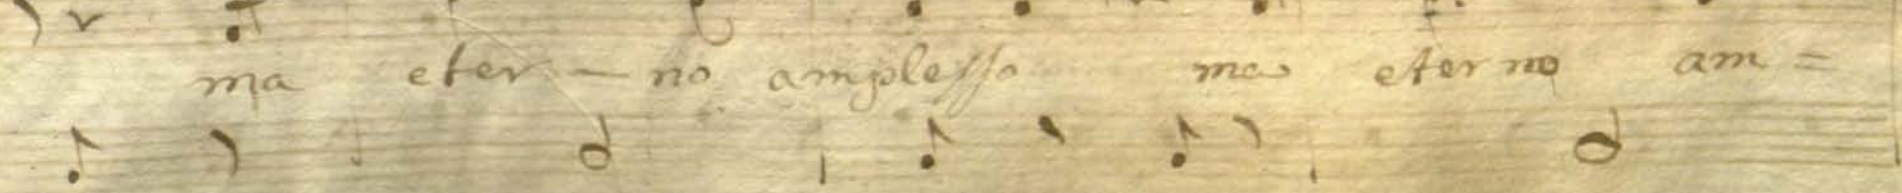 ma eter - no amplesso ma eterno am =